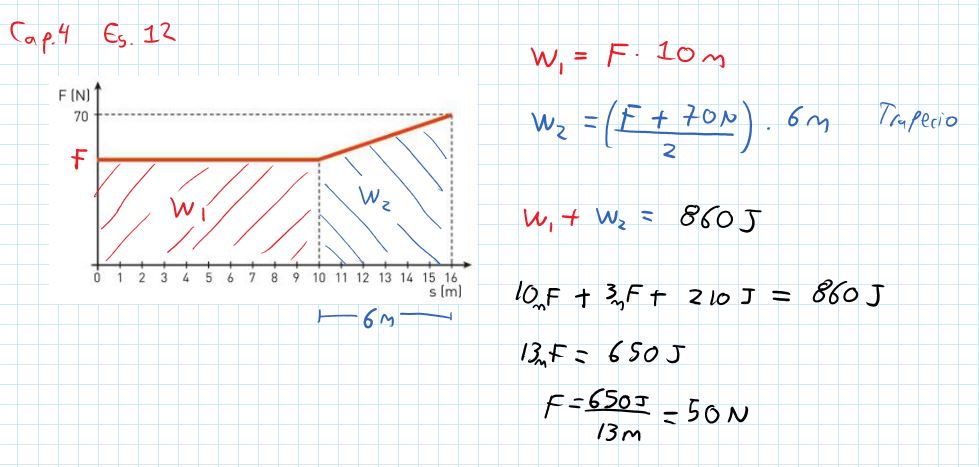 Cap.4 Es. 12
F (N)
70
F
W₁
W₂
0 1 2 3 4 5 6 7 8 9 10 11 12 13 14 15 16
s (m)
6m
W₁ = F · 10 m
W₂ = (F + 70N / 2) · 6m Trapecio
W₁ + W₂ = 860 J
10mF + 3mF + 210 J = 860 J
13mF = 650 J
F = 650J / 13m = 50 N